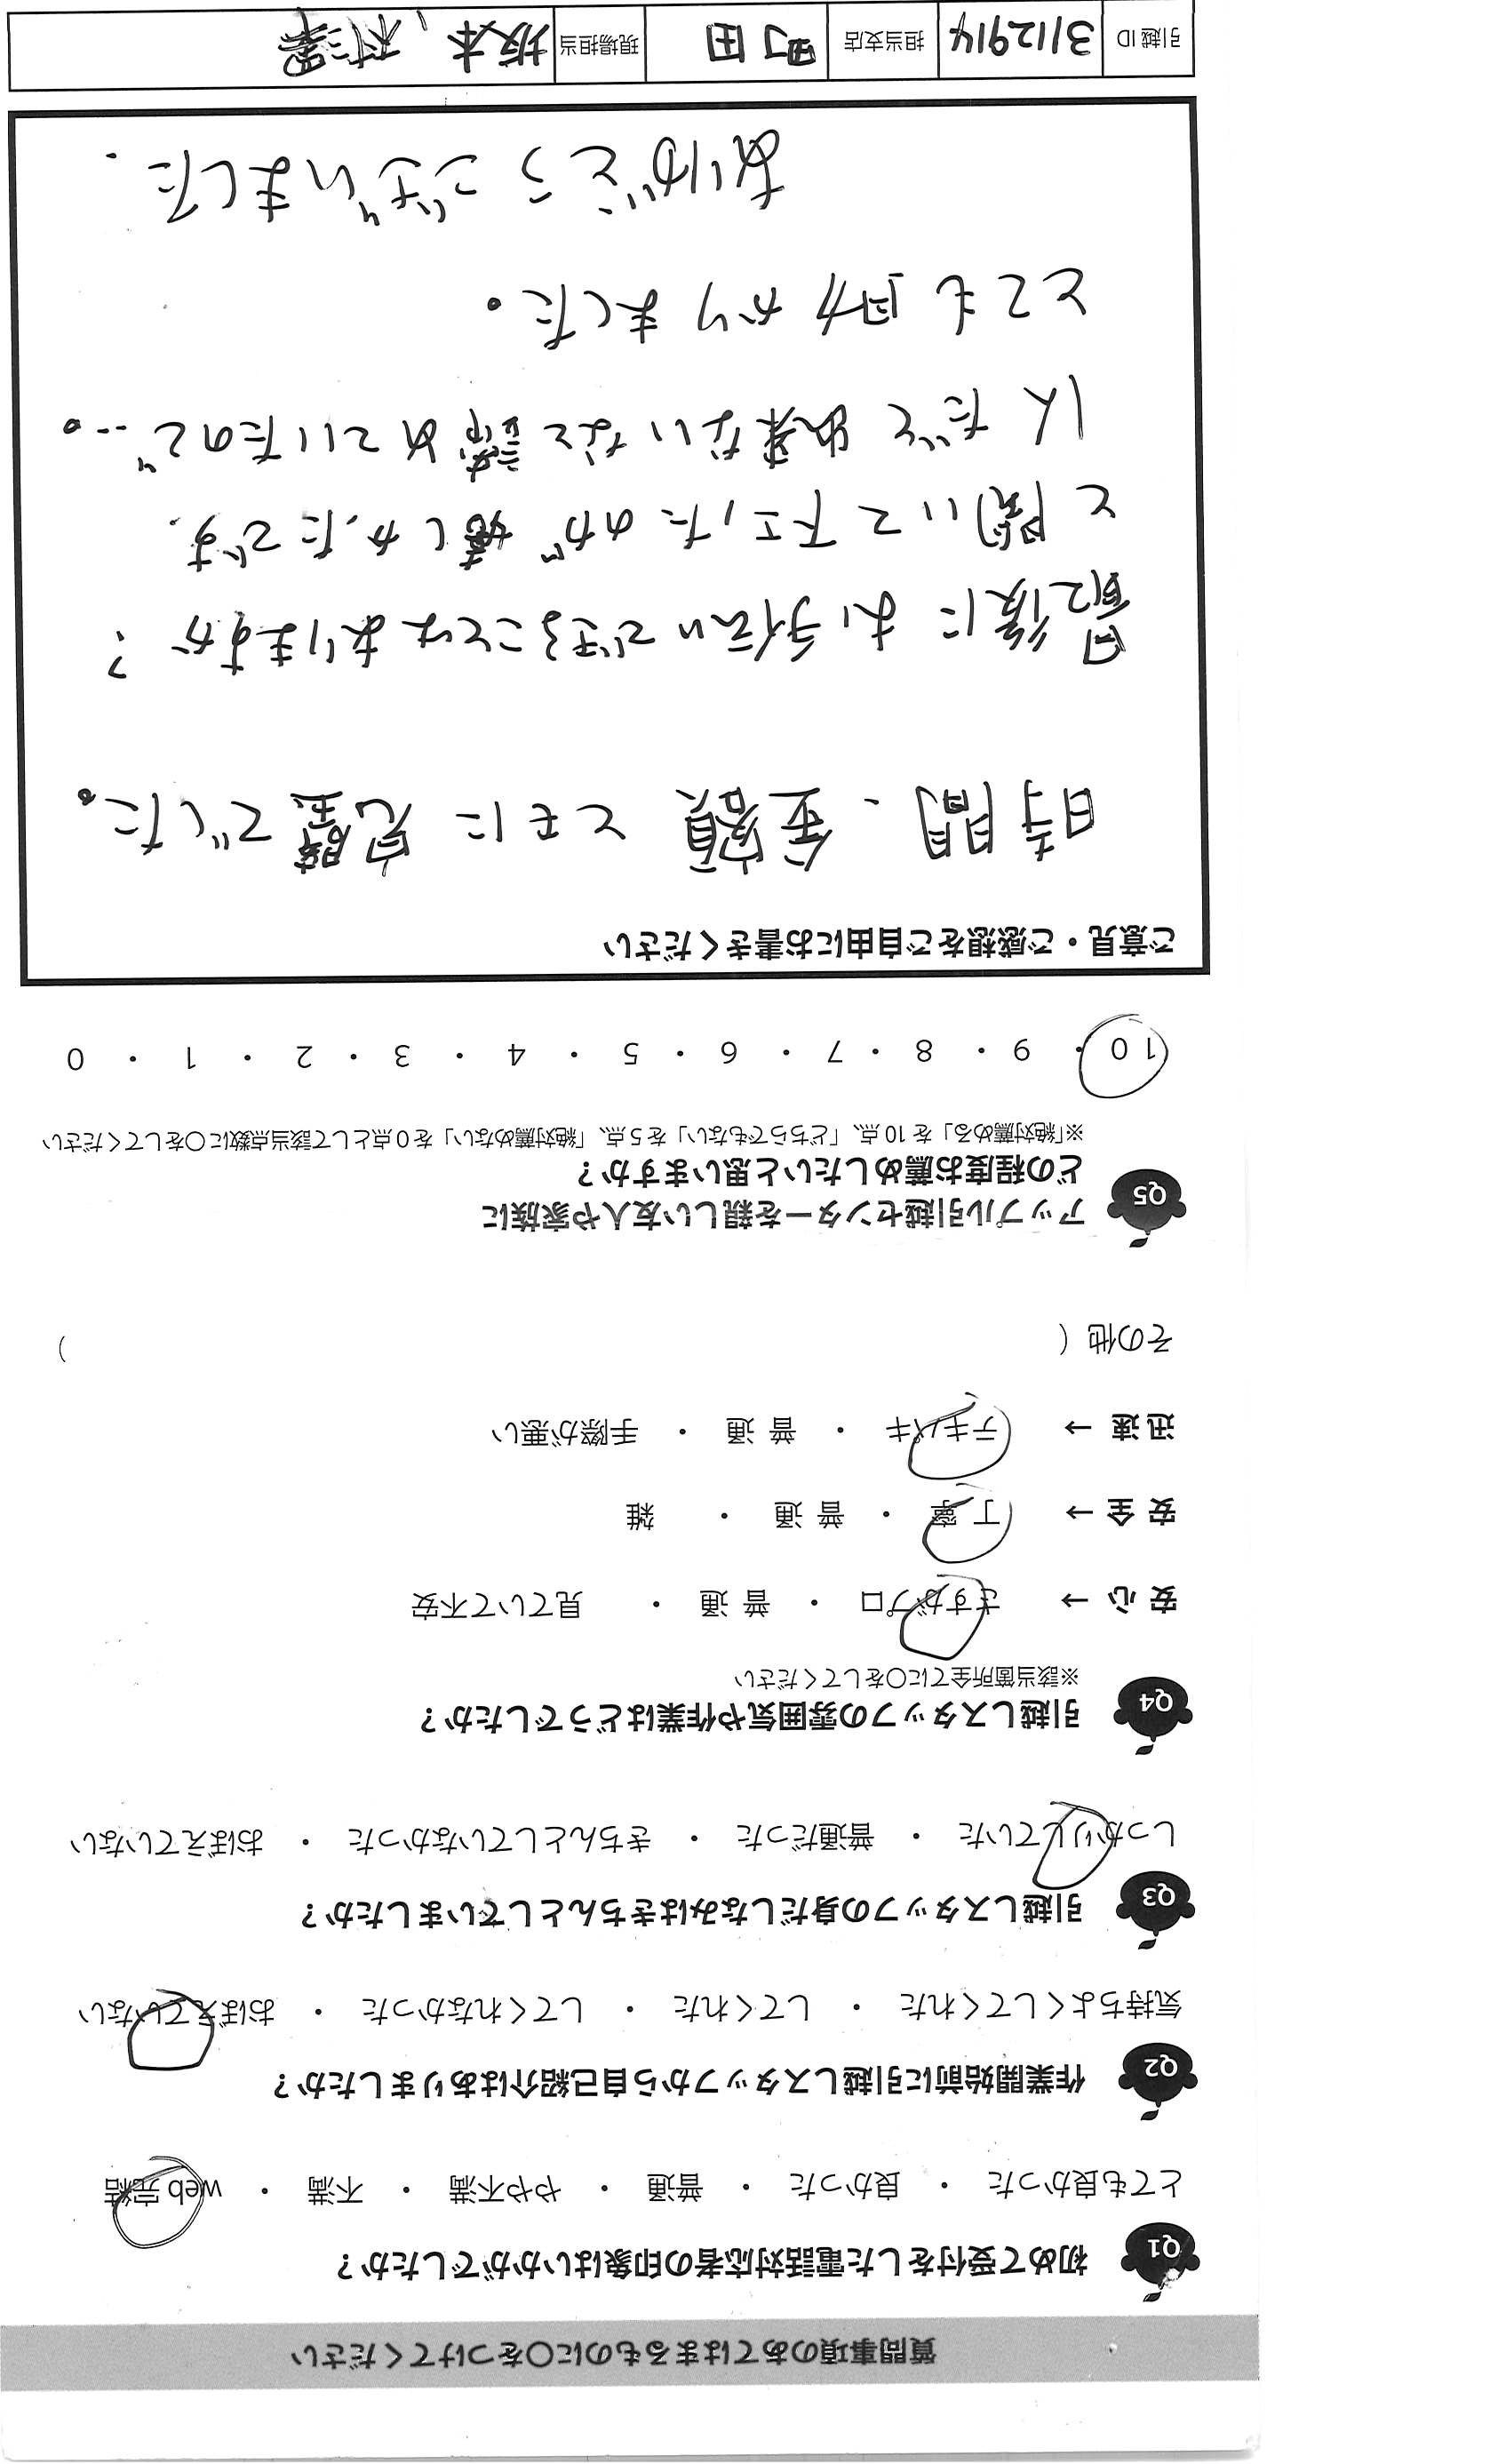 質問事項のあてはまるものに○をつけてください
Q1 初めて受付をした電話対応者の印象はいかがでしたか？
とても良かった ・ 良かった ・ 普通 ・ やや不満 ・ 不満 ・ web 完結
Q2 作業開始前に引越しスタッフから自己紹介はありましたか？
気持ちよくしてくれた ・ してくれた ・ してくれなかった ・ おぼえていない
Q3 引越しスタッフの身だしなみはきちんとしていましたか？
しっかりしていた ・ 普通だった ・ きちんとしていなかった ・ おぼえていない
Q4 引越しスタッフの雰囲気や作業はどうでしたか？
※該当箇所全てに○をしてください
安 心 → さすがプロ ・ 普 通 ・ 見ていて不安
安 全 → 丁 寧 ・ 普 通 ・ 雑
迅 速 → テキパキ ・ 普 通 ・ 手際が悪い
その他（ ）
Q5 アップル引越センターを親しい友人や家族に
どの程度お薦めしたいと思いますか？
※「絶対薦める」を 10 点、「どちらでもない」を 5 点、「絶対薦めない」を 0 点として該当点数に○をしてください
10 ・ 9 ・ 8 ・ 7 ・ 6 ・ 5 ・ 4 ・ 3 ・ 2 ・ 1 ・ 0
ご意見・ご感想をご自由にお書きください
時間、金額 ともに 完璧でした。
最後に お手伝いできることはありますか？
と聞いて下さったのが 嬉しかったです.
1人だと出来ないなと諦めていたので…。
とても助かりました。
ありがとうございました.
引越ID 3112914 担当支店 町田 現場担当 坂本、村澤